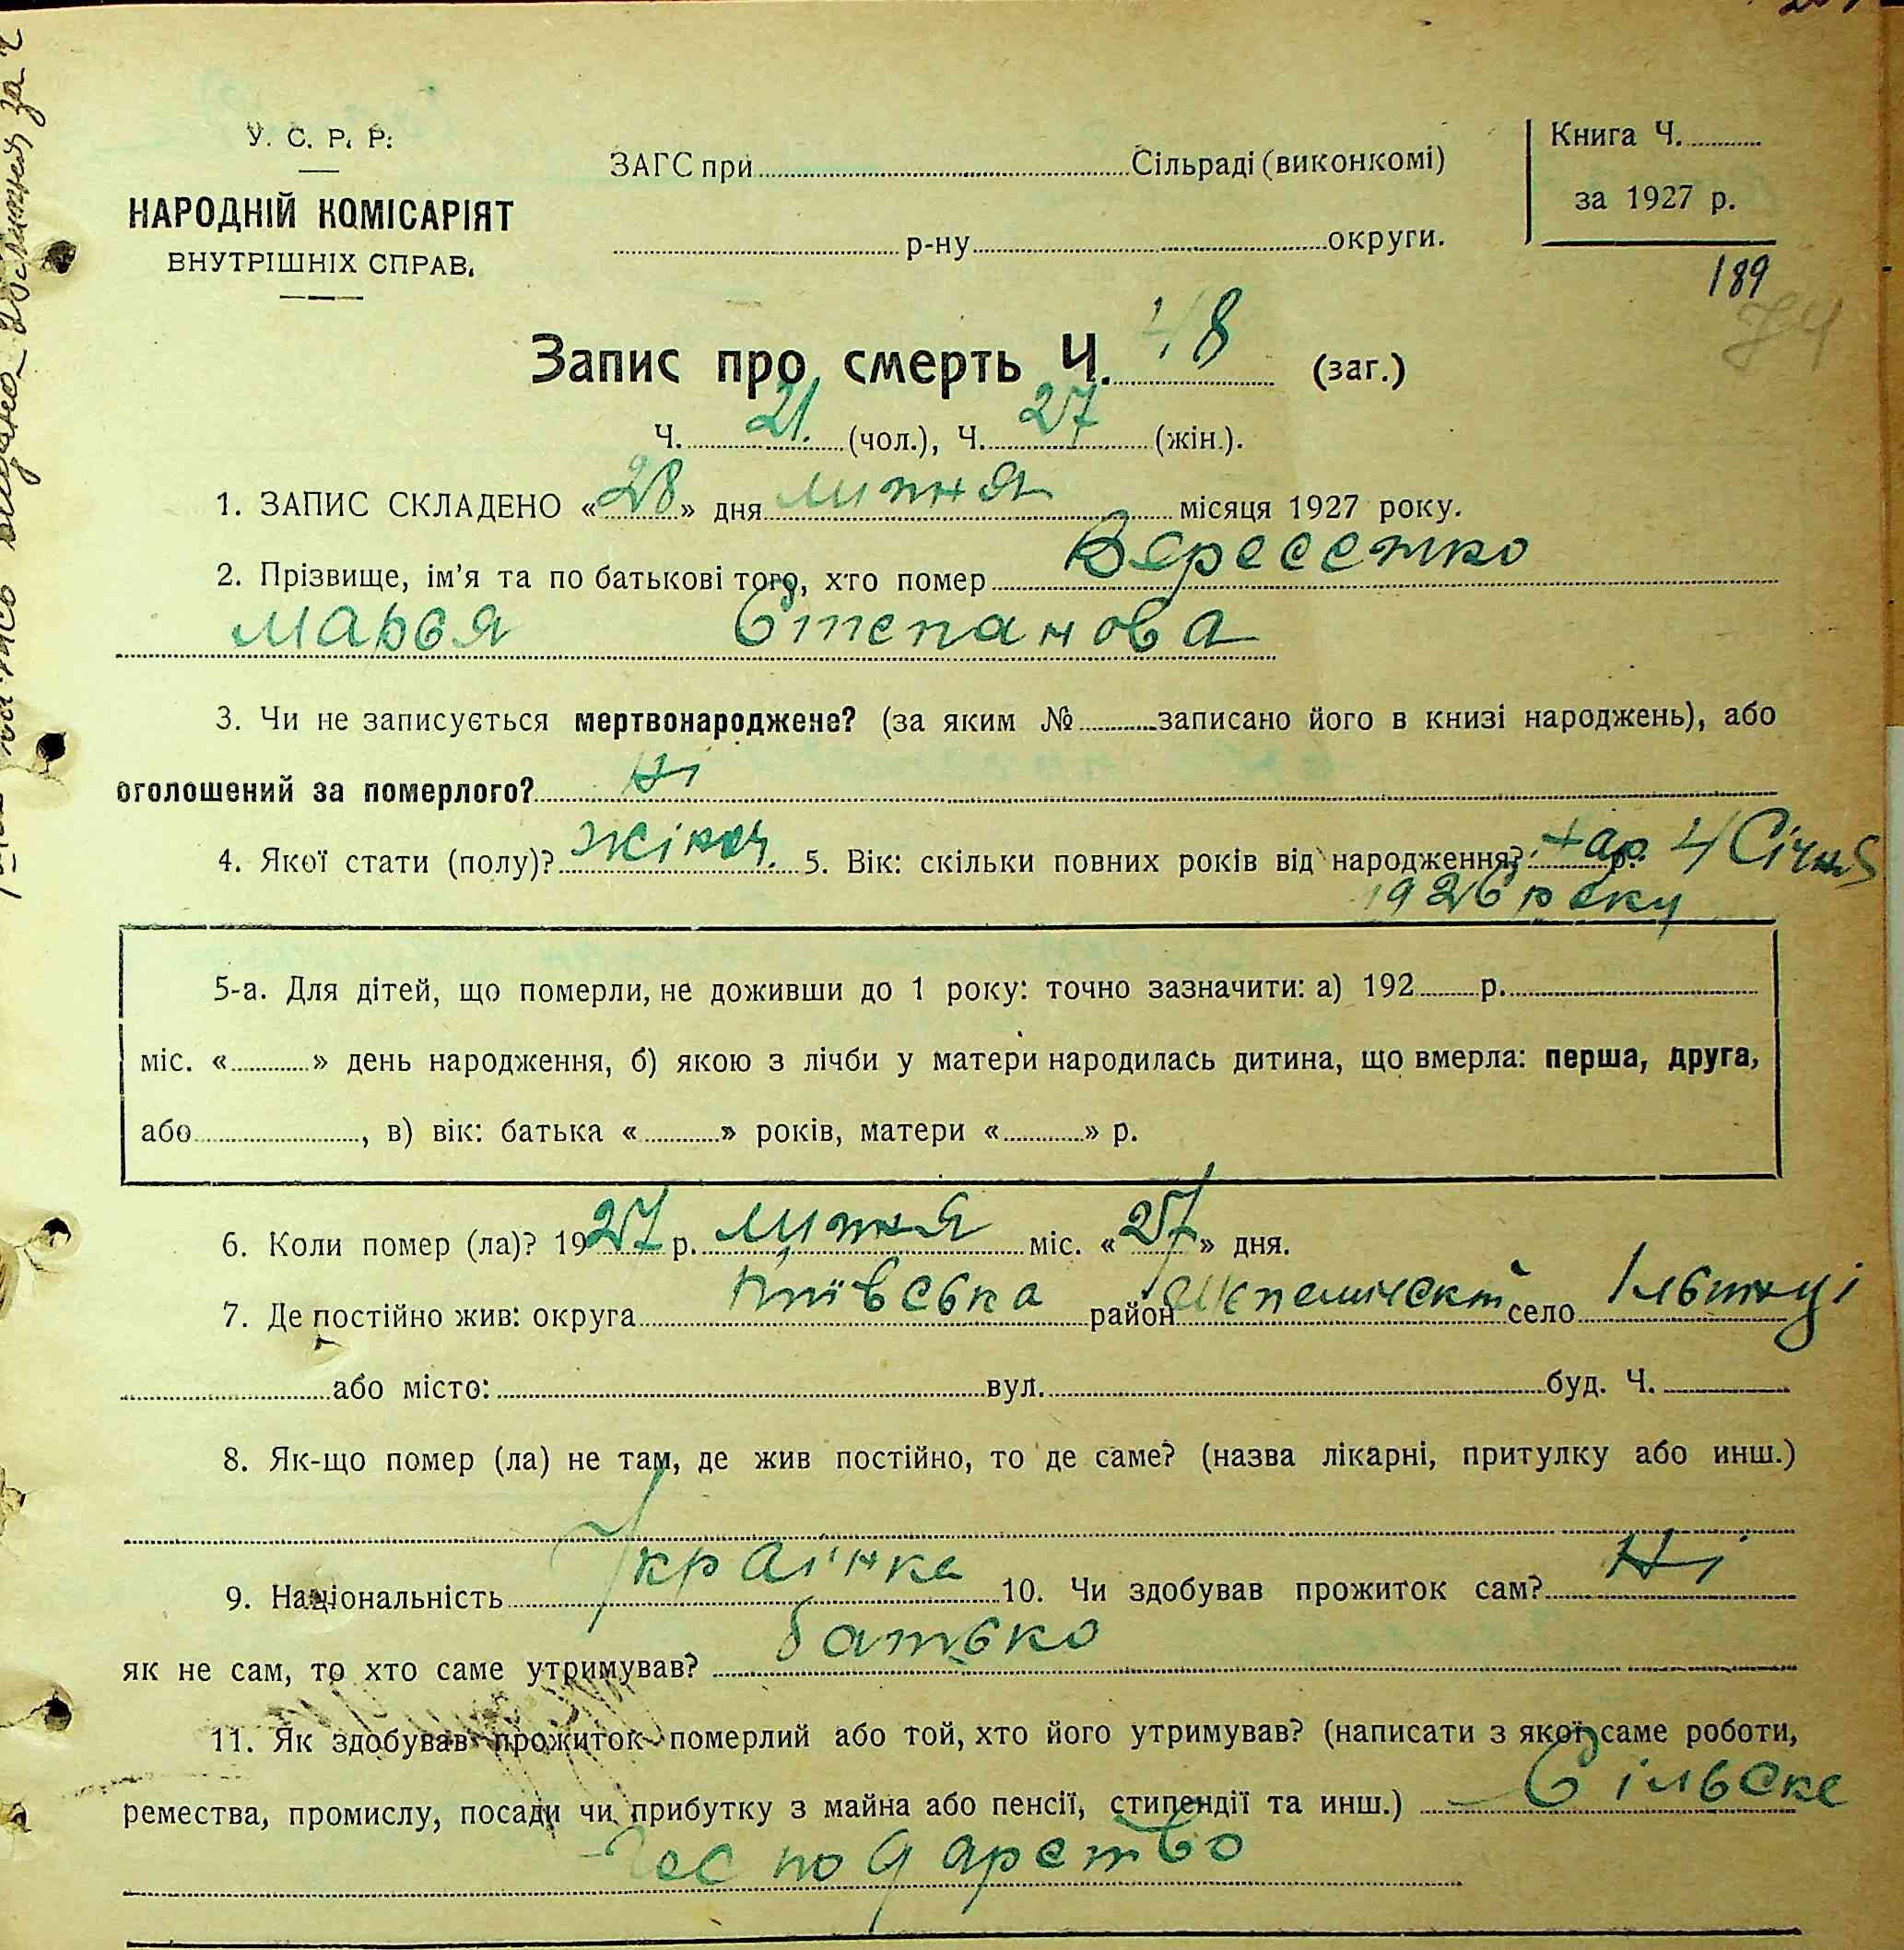 У. С. Р. Р.
НАРОДНІЙ КОМІСАРІЯТ
ВНУТРІШНІХ СПРАВ.
ЗАГС при Сільраді (виконкомі)
р-ну округи.
Книга Ч.
за 1927 р.
189
74
Запис про смерть Ч. 48 (заг.)
Ч. 21. (чол.), Ч. 27 (жін.).
1. ЗАПИС СКЛАДЕНО «28» дня липня місяця 1927 року.
2. Прізвище, ім'я та по батькові того, хто помер
Марья Степанова
3. Чи не записується мертвонароджене? (за яким № записано його в книзі народжень), або
оголошений за померлого? Ні
4. Якої стати (полу)? жіноч. 5. Вік: скільки повних років від народження? нар 4 Січня
1926 року
5-а. Для дітей, що померли, не доживши до 1 року: точно зазначити: а) 192 р.
міс. « » день народження, б) якою з лічби у матери народилась дитина, що вмерла: перша, друга,
або , в) вік: батька « » років, матери « » р.
6. Коли помер (ла)? 1927 р. липня міс. «27» дня.
7. Де постійно жив: округа Київська район село Ільинці
або місто: вул. буд. Ч.
8. Як-що помер (ла) не там, де жив постійно, то де саме? (назва лікарні, притулку або инш.)
9. Національність Українка 10. Чи здобував прожиток сам? Ні
як не сам, то хто саме утримував? батько
11. Як здобував прожиток померлий або той, хто його утримував? (написати з якої саме роботи,
ремества, промислу, посади чи прибутку з майна або пенсії, стипендії та инш.) Сільске
Господарство